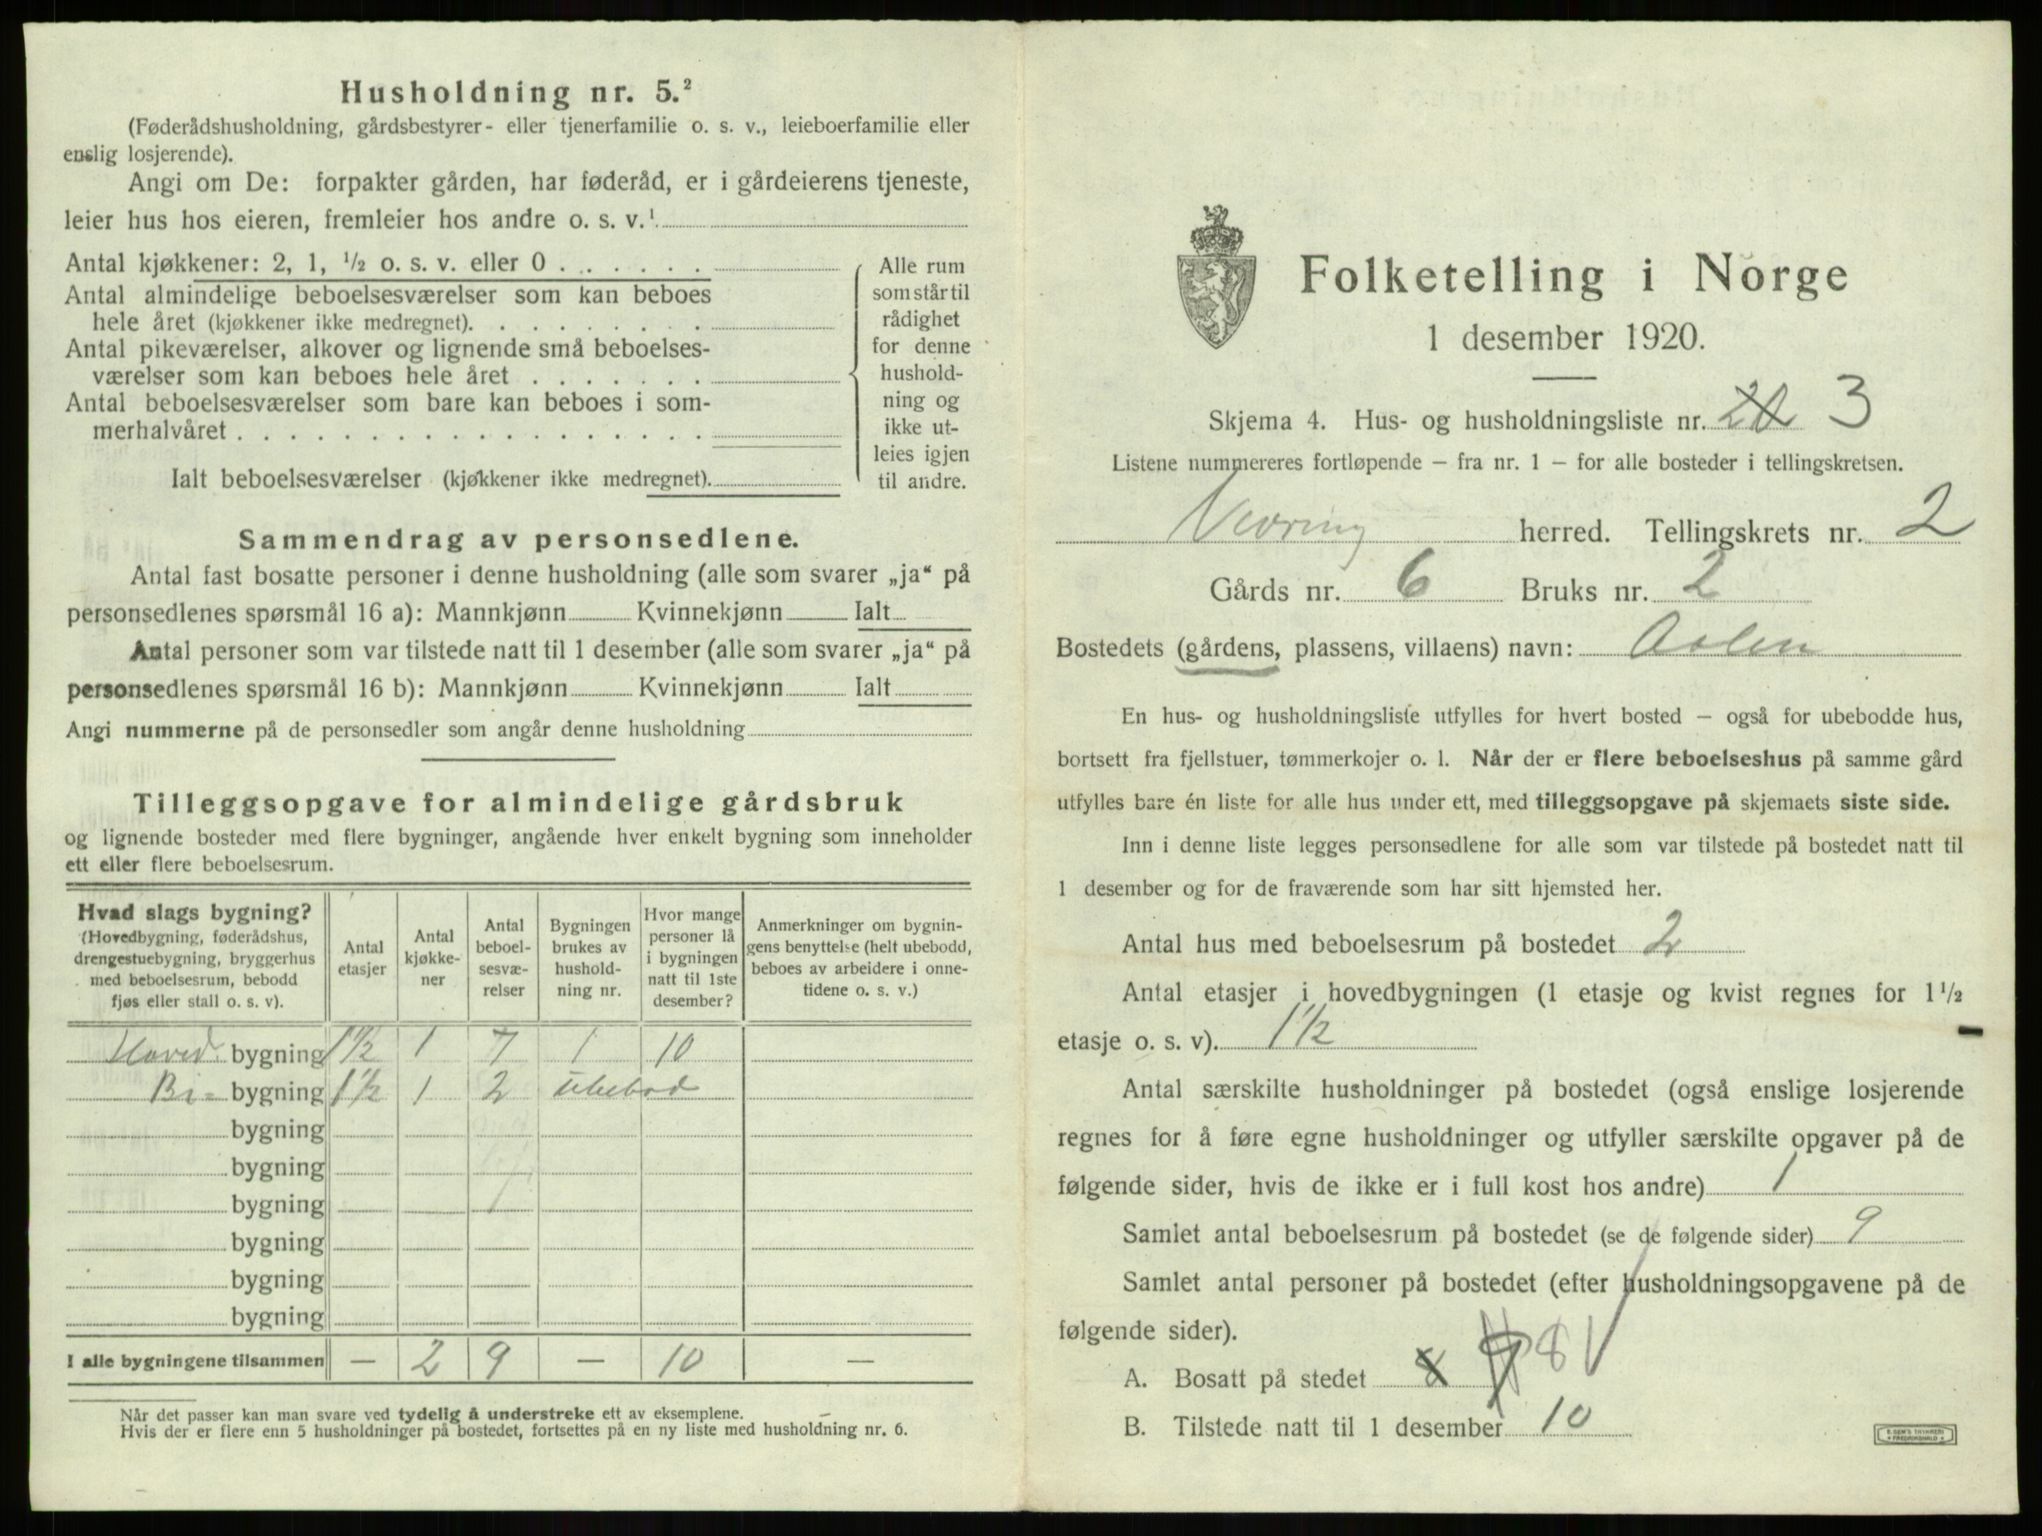 Husholdning nr. 5.²
(Føderådshusholdning, gårdsbestyrer- eller tjenerfamilie o. s. v., leieboerfamilie eller
enslig losjerende).
Angi om De: forpakter gården, har føderåd, er i gårdeierens tjeneste,
leier hus hos eieren, fremleier hos andre o. s. v.¹
Antal kjøkkener: 2, 1, ½ o. s. v. eller 0
Antal almindelige beboelsesværelser som kan beboes
hele året (kjøkkener ikke medregnet).
Antal pikeværelser, alkover og lignende små beboelses-
værelser som kan beboes hele året
Antal beboelsesværelser som bare kan beboes i som-
merhalvåret
Ialt beboelsesværelser (kjøkkener ikke medregnet).
Alle rum
som står til
rådighet
for denne
hushold-
ning og
ikke ut-
leies igjen
til andre.
Sammendrag av personsedlene.
Antal fast bosatte personer i denne husholdning (alle som svarer „ja“ på
personsedlenes spørsmål 16 a): Mannkjønn Kvinnekjønn Ialt
Antal personer som var tilstede natt til 1 desember (alle som svarer „ja“ på
personsedlenes spørsmål 16 b): Mannkjønn Kvinnekjønn Ialt
Angi nummerne på de personsedler som angår denne husholdning
Tilleggsopgave for almindelige gårdsbruk
og lignende bosteder med flere bygninger, angående hver enkelt bygning som inneholder
ett eller flere beboelsesrum.
Hvad slags bygning?
(Hovedbygning, føderådshus,
drengestuebygning, bryggerhus
med beboelsesrum, bebodd
fjøs eller stall o. s. v).
Antal
etasjer
Antal
kjøkke-
ner
Antal
beboel-
sesvæ-
relser
Bygningen
brukes av
hushold-
ning nr.
Hvor mange
personer lå
i bygningen
natt til 1ste
desember?
Anmerkninger om bygnin-
gens benyttelse (helt ubebodd,
beboes av arbeidere i onne-
tidene o. s. v.)
Hoved bygning 1½ 1 7 1 10
Bi- bygning 1½ 1 2 Ubebod
bygning
bygning
bygning
bygning
bygning
bygning
I alle bygningene tilsammen — 2 9 — 10 —
Når det passer kan man svare ved tydelig å understreke ett av eksemplene.
Hvis der er flere enn 5 husholdninger på bostedet, fortsettes på en ny liste med husholdning nr. 6.
Folketelling i Norge
1 desember 1920.
Skjema 4. Hus- og husholdningsliste nr. 3
Listene nummereres fortløpende – fra nr. 1 – for alle bosteder i tellingskretsen.
Vevring herred. Tellingskrets nr. 2
Gårds nr. 6 Bruks nr. 2
Bostedets (gårdens, plassens, villaens) navn:
En hus- og husholdningsliste utfylles for hvert bosted – også for ubebodde hus,
bortsett fra fjellstuer, tømmerkojer o. l. Når der er flere beboelseshus på samme gård
utfylles bare én liste for alle hus under ett, med tilleggsopgave på skjemaets siste side.
Inn i denne liste legges personsedlene for alle som var tilstede på bostedet natt til
1 desember og for de fraværende som har sitt hjemsted her.
Antal hus med beboelsesrum på bostedet 2
Antal etasjer i hovedbygningen (1 etasje og kvist regnes for 1½
etasje o. s. v). 1½
Antal særskilte husholdninger på bostedet (også enslige losjerende
regnes for å føre egne husholdninger og utfyller særskilte opgaver på de
følgende sider, hvis de ikke er i full kost hos andre) 1
Samlet antal beboelsesrum på bostedet (se de følgende sider) 9
Samlet antal personer på bostedet (efter husholdningsopgavene på de
følgende sider).
A. Bosatt på stedet 8 8
B. Tilstede natt til 1 desember 10